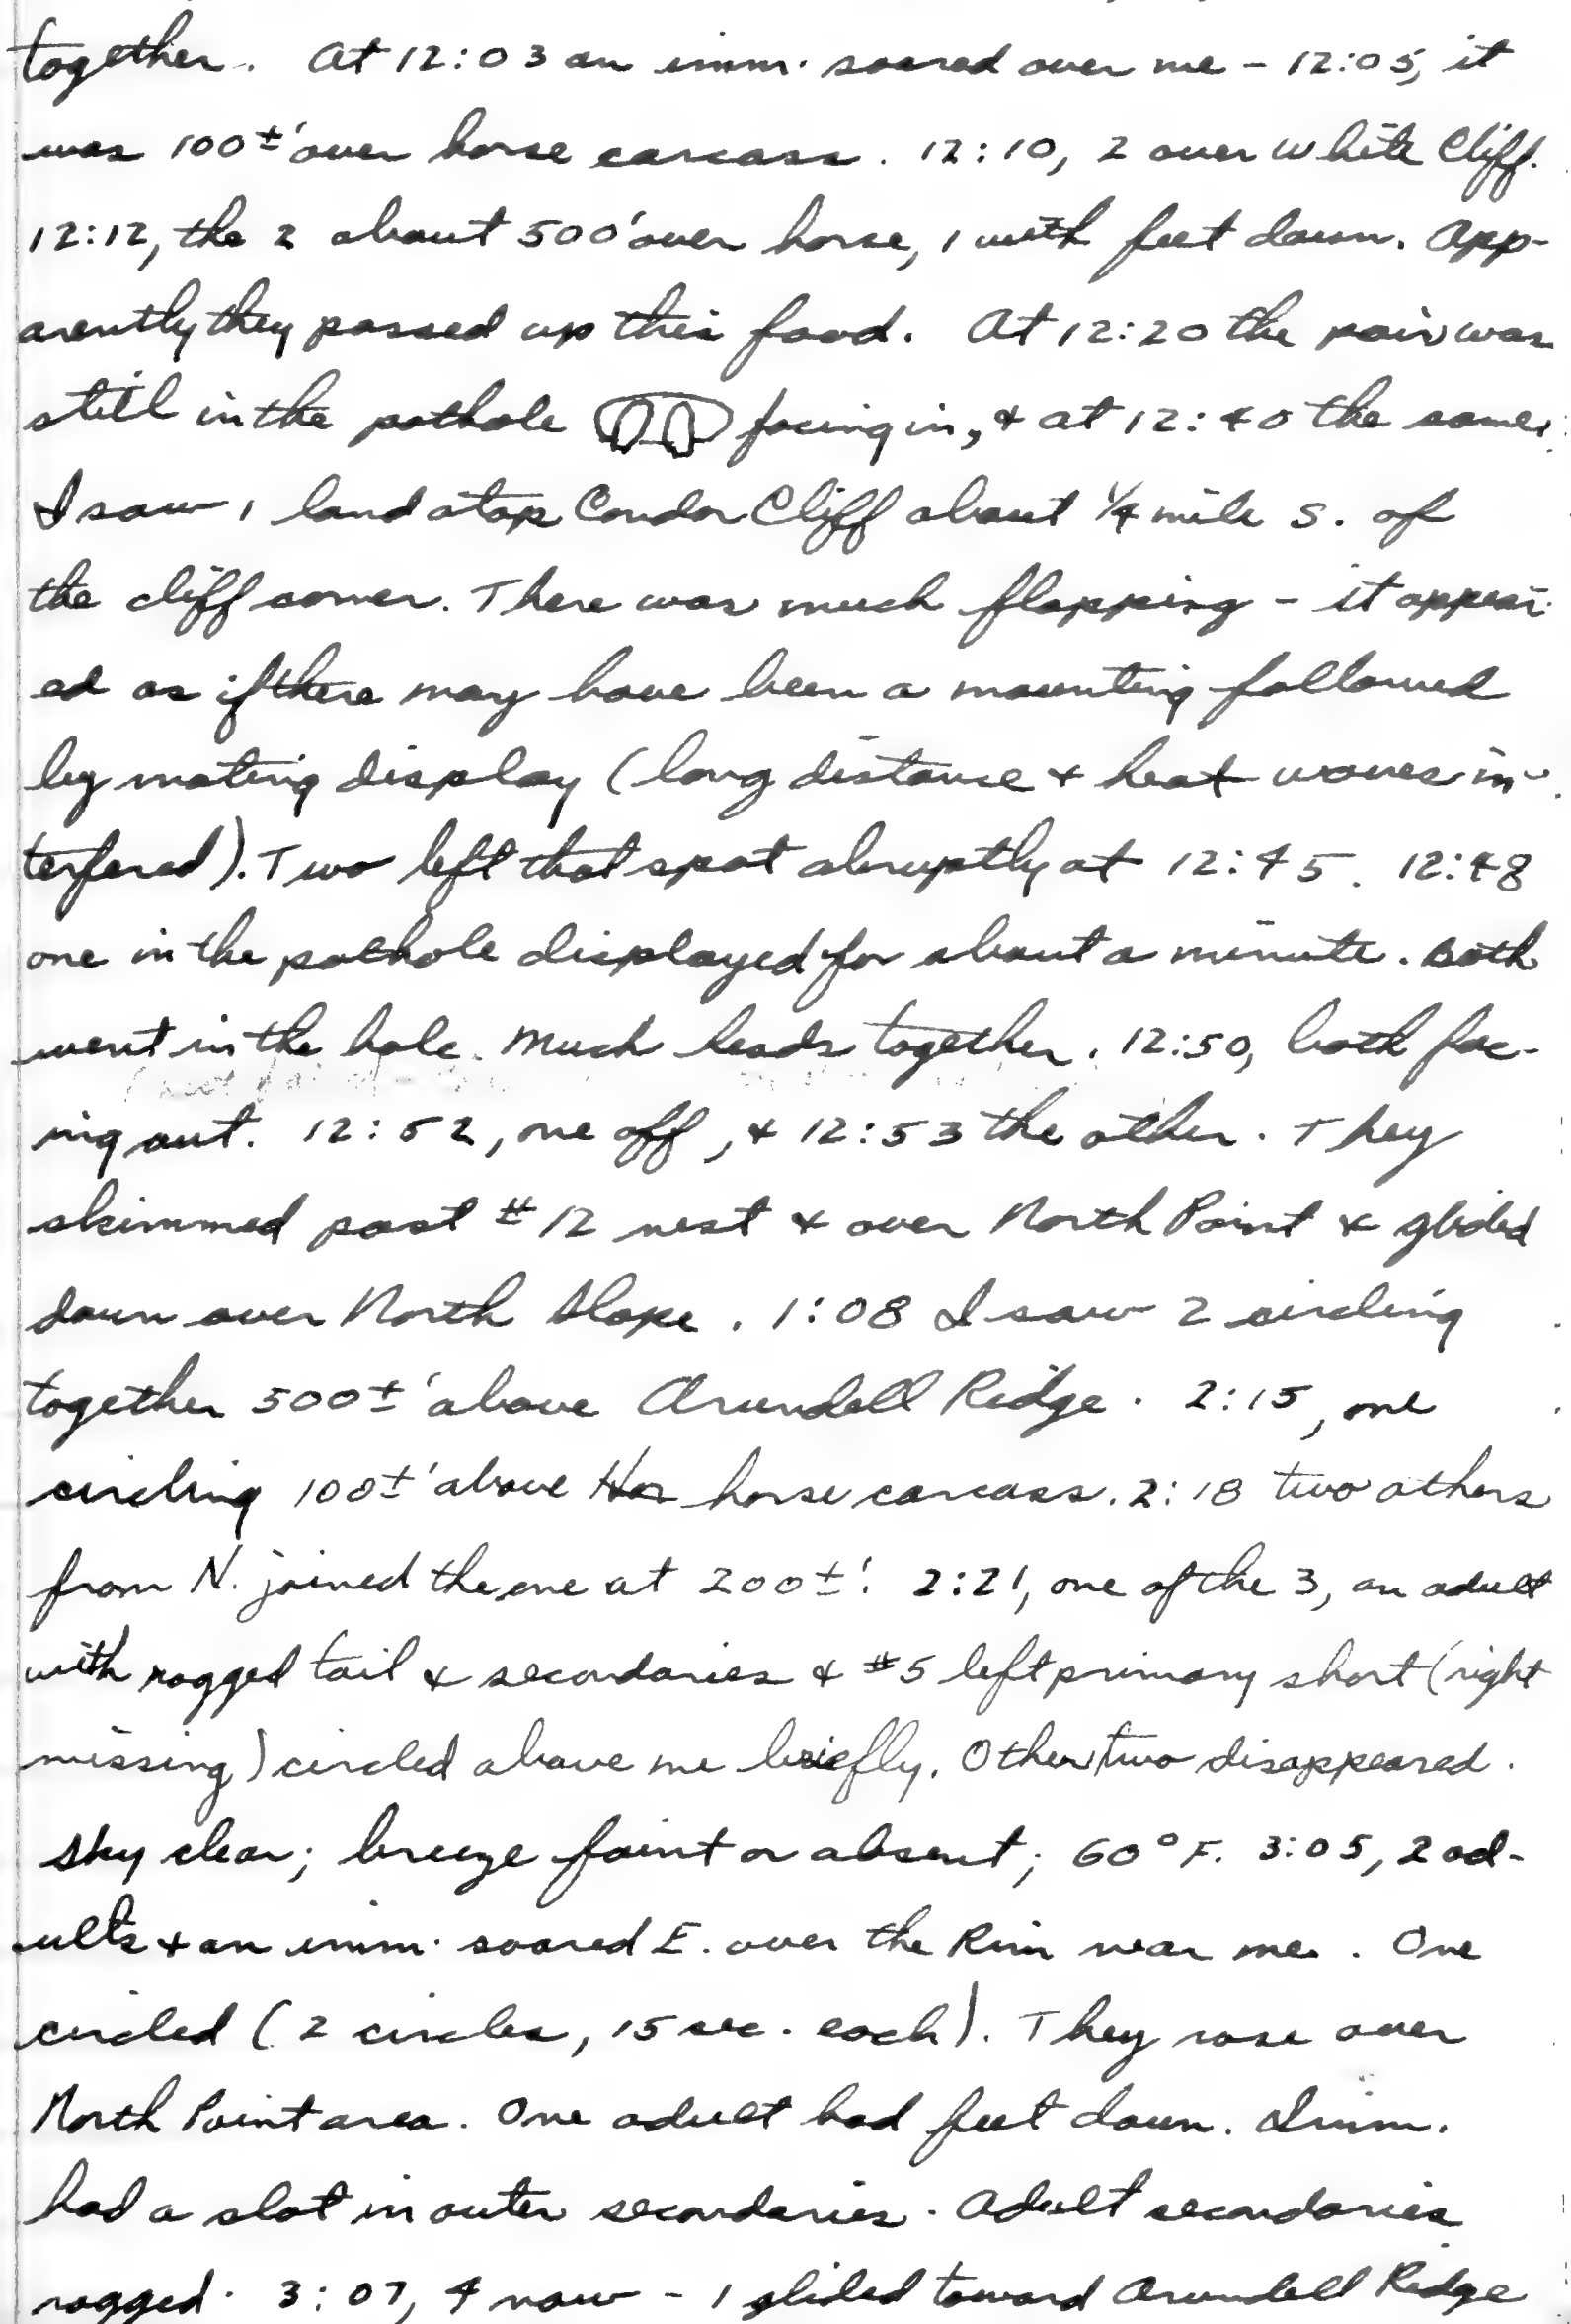 together. At 12:03 an imm. soared over me - 12:05, it
was 100±' over horse carcass. 12:10, 2 over White Cliff.
12:12, the 2 about 500' over horse, 1 with feet down. App-
arently they passed up this food. At 12:20 the pair was
still in the pothole facing in, & at 12:40 the same.
I saw 1 land atop Condor Cliff about 1/4 mile S. of
the cliff corner. There was much flapping - it appear-
ed as if there may have been a mounting followed
by mating display (long distance & heat waves in-
terfered). Two left that spot abruptly at 12:45. 12:48
one in the pothole displayed for about a minute. Both
went in the hole. Much heads together. 12:50, both fac-
ing out. 12:52, one off, & 12:53 the other. They
skimmed past #12 nest & over North Point & glided
down over North Slope. 1:08 I saw 2 circling
together 500±' above Arundell Ridge. 2:15, one
circling 100±' above Hor horse carcass. 2:18 two others
from N. joined the one at 200±'. 2:21, one of the 3, an adult
with ragged tail & secondaries & #5 left primary short (right
missing) circled above me briefly. Other two disappeared.
Sky clear; breeze faint or absent; 60°F. 3:05, 2 ad-
ults & an imm. soared E. over the Rim near me. One
circled (2 circles, 15 sec. each). They rose over
North Point area. One adult had feet down. Imm.
had a slot in outer secondaries. Adult secondaries
ragged. 3:07, 4 now - 1 glided toward Arundell Ridge